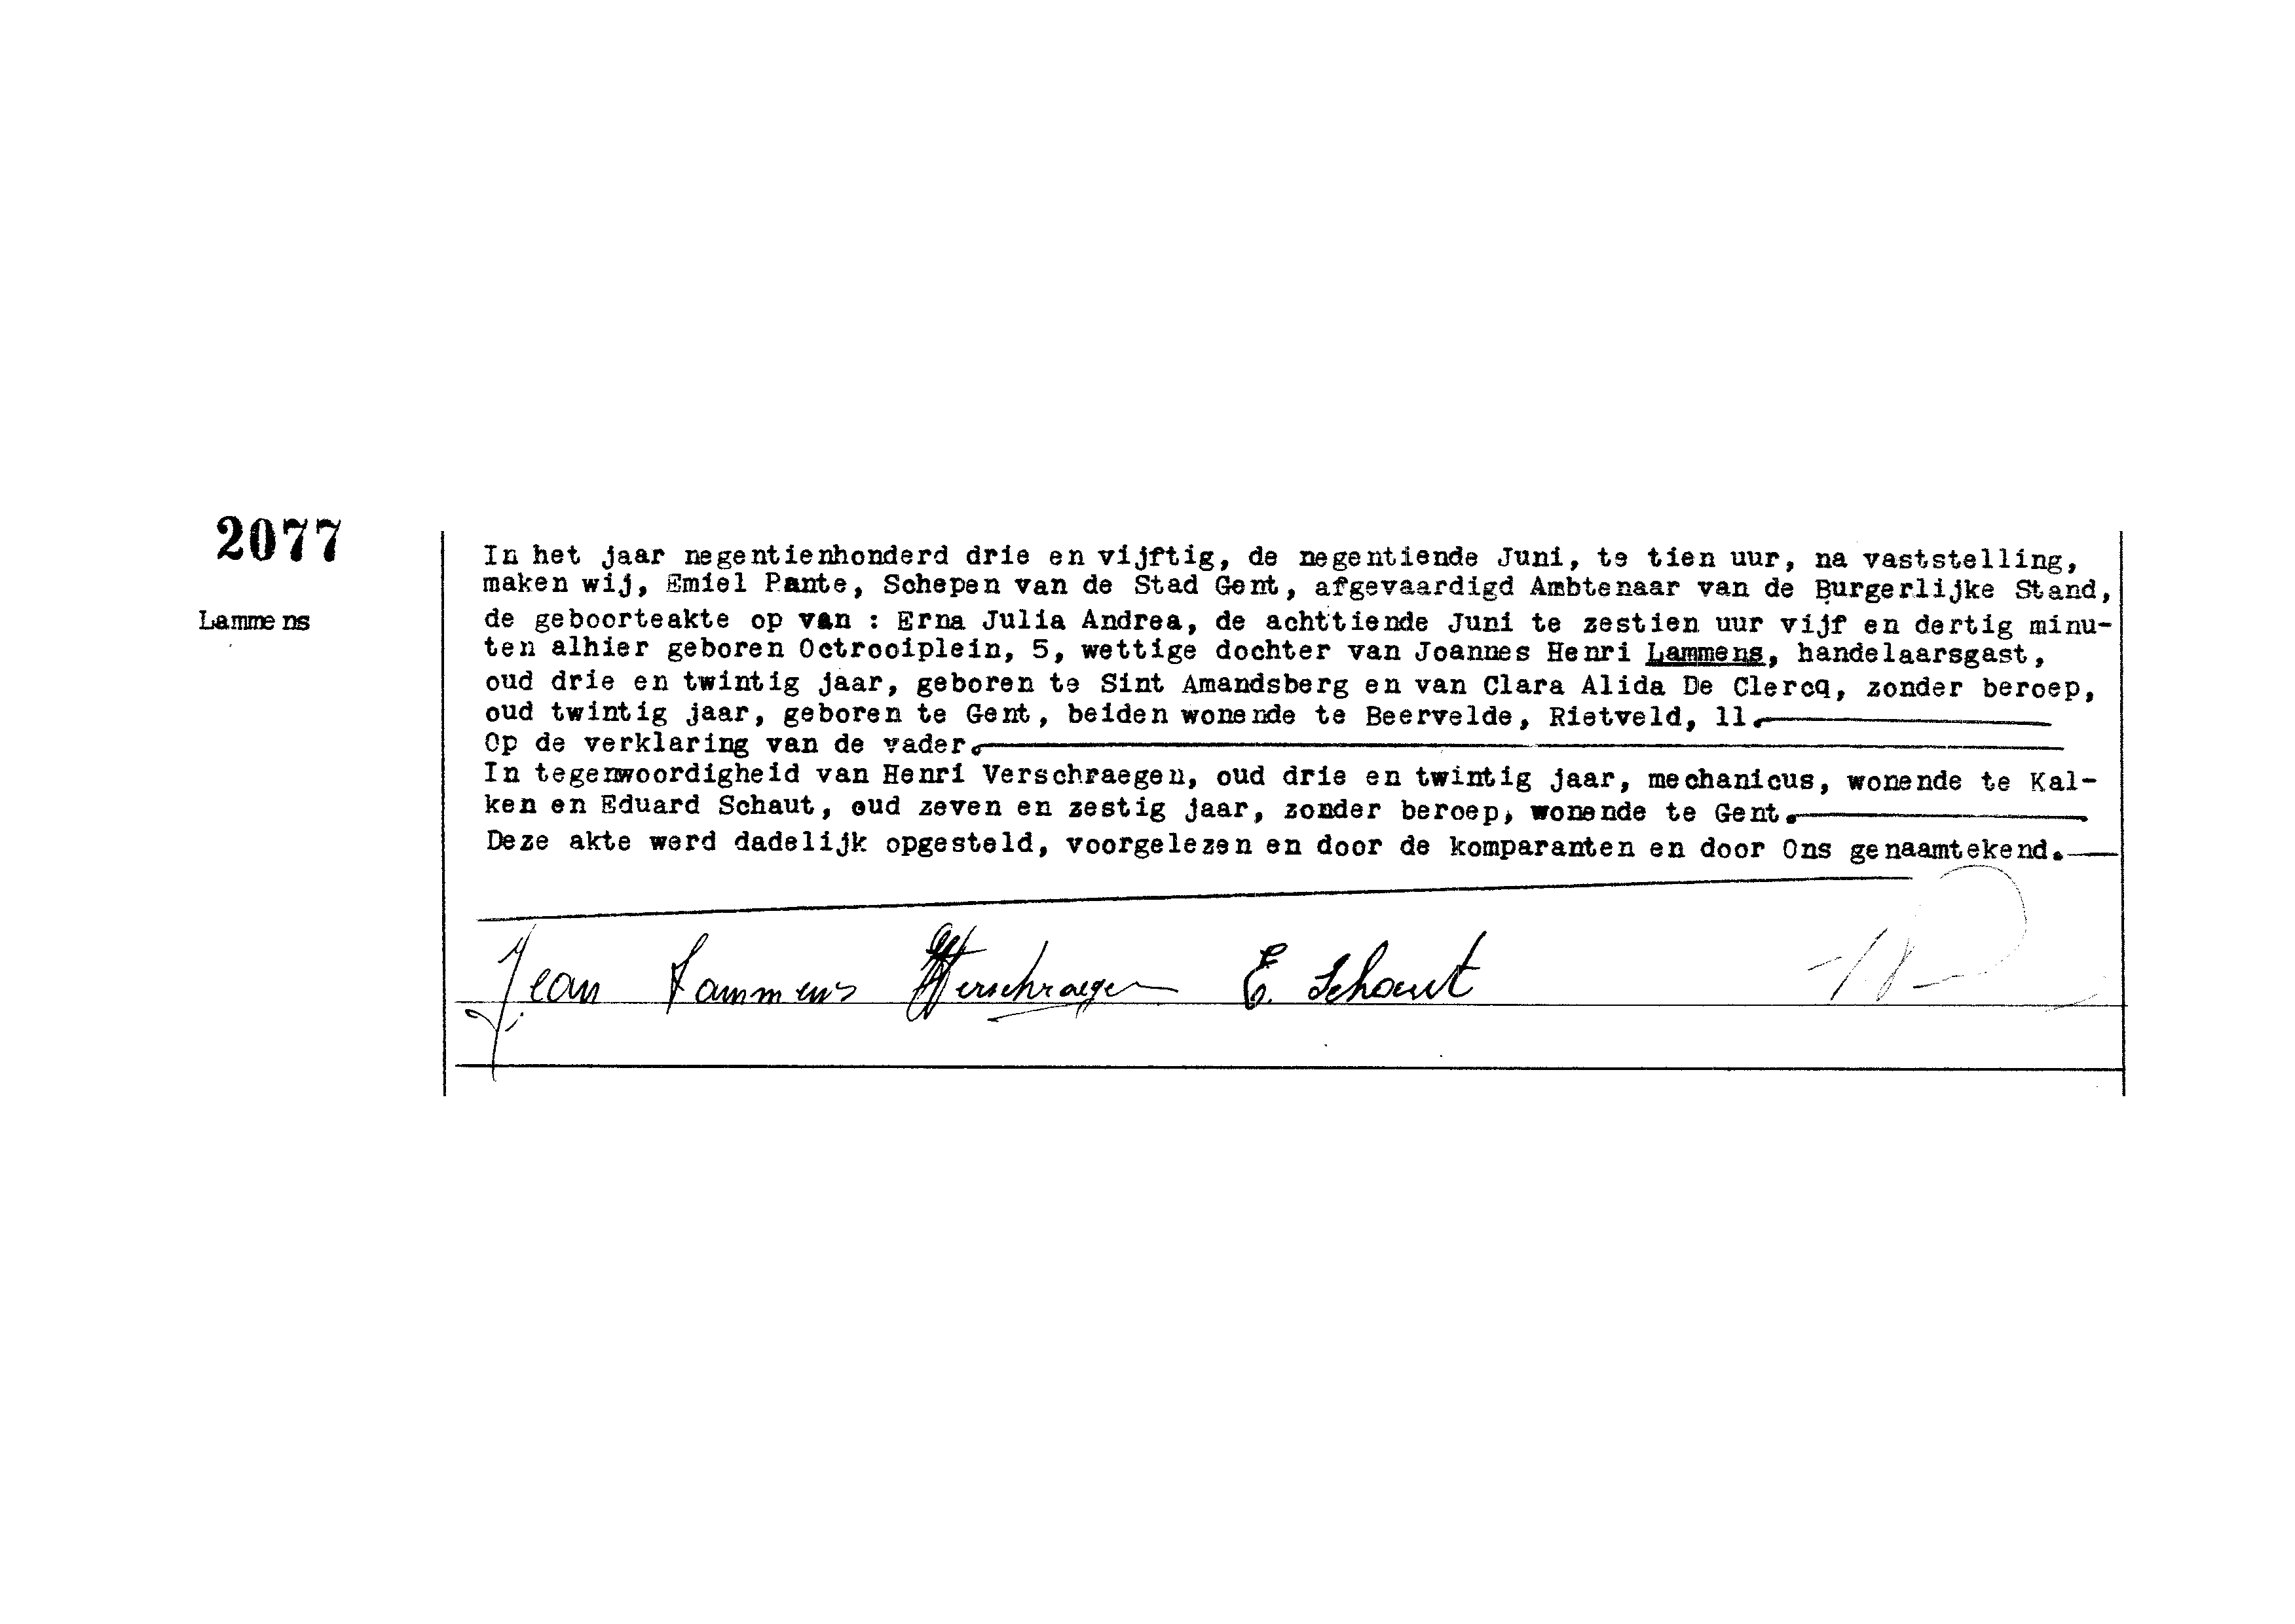 2077
Lammens
In het jaar negentienhonderd drie en vijftig, de negentiende Juni, te tien uur, na vaststelling,
maken wij, Emiel Pante, Schepen van de Stad Gent, afgevaardigd Ambtenaar van de Burgerlijke Stand,
de geboorteakte op van : Erna Julia Andrea, de achttiende Juni te zestien uur vijf en dertig minu-
ten alhier geboren Octrooiplein, 5, wettige dochter van Joannes Henri Lammens, handelaarsgast,
oud drie en twintig jaar, geboren te Sint Amandsberg en van Clara Alida De Clercq, zonder beroep,
oud twintig jaar, geboren te Gent, beiden wonende te Beervelde, Rietveld, 11.
Op de verklaring van de vader.
In tegenwoordigheid van Henri Verschraegen, oud drie en twintig jaar, mechanicus, wonende te Kal-
ken en Eduard Schaut, oud zeven en zestig jaar, zonder beroep, wonende te Gent.
Deze akte werd dadelijk opgesteld, voorgelezen en door de komparanten en door Ons genaamtekend.
Jean Lammens HVerschraegen E. Schaut